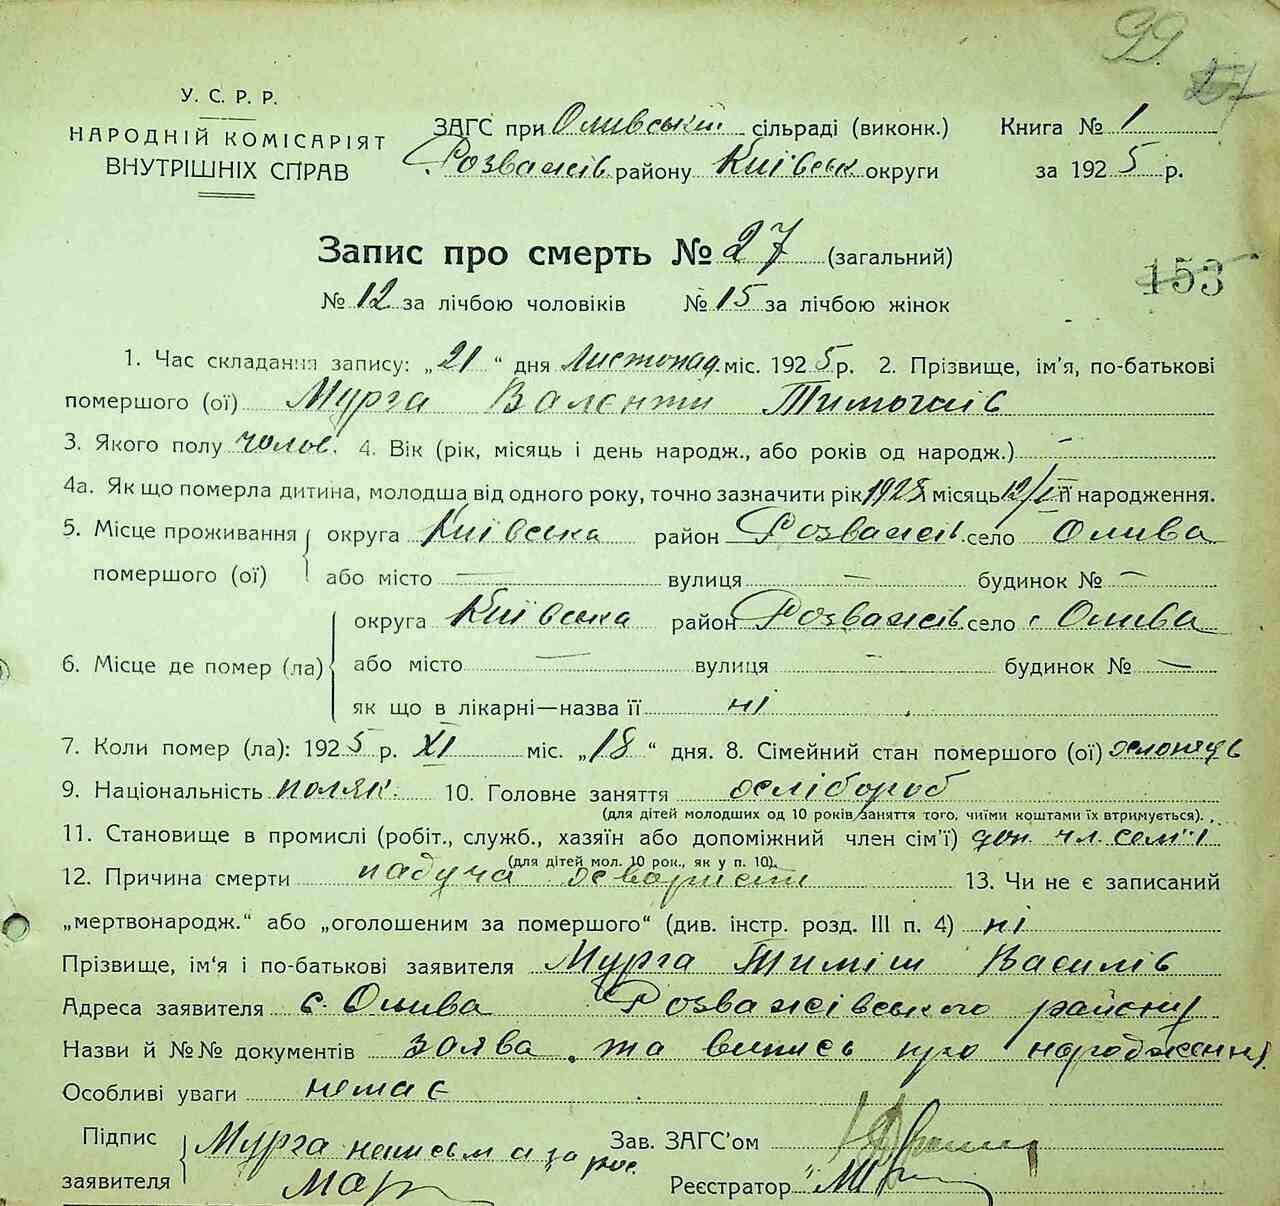 99
27
У. С. Р. Р.
НАРОДНІЙ КОМІСАРІЯТ
ВНУТРІШНІХ СПРАВ
ЗАГС при Оливській сільраді (виконк.)
Розважів району Київськ округи
Книга № 1
за 1925 р.
Запис про смерть № 27 (загальний)
№ 12 за лічбою чоловіків № 15 за лічбою жінок
153
1. Час складання запису: „21“ дня Листопад міс. 1925 р. 2. Прізвище, ім'я, по-батькові
помершого (ої) Мурга Валенти Тимошів
3. Якого полу чолов. 4. Вік (рік, місяць і день народж., або років од народж.) —
4а. Як що померла дитина, молодша від одного року, точно зазначити рік місяць її народження.
5. Місце проживання помершого (ої) округа Київська район Розважів. село Олива
або місто — вулиця — будинок № —
6. Місце де помер (ла) округа Київська район Розважів. село с Олива
або місто — вулиця — будинок № —
як що в лікарні—назва її ні
7. Коли помер (ла): 1925 р. XI міс. „18“ дня. 8. Сімейний стан помершого (ої)
9. Національність поляк. 10. Головне заняття хлібороб
(для дітей молодших од 10 років заняття того, чиїми коштами їх втримується).
11. Становище в промислі (робіт., служб., хазяїн або допоміжний член сім'ї) доп. чл. сем'ї
(для дітей мол. 10 рок., як у п. 10).
12. Причина смерти падуча 13. Чи не є записаний
„мертвонародж.“ або „оголошеним за помершого“ (див. інстр. розд. III п. 4) ні
Прізвище, ім'я і по-батькові заявителя Мурга Тиміш Василів
Адреса заявителя с. Олива Розважівського району
Назви й №№ документів заява та випись про народження
Особливі уваги немає
Підпис заявителя Мурга
Зав. ЗАГС'ом
Реєстратор